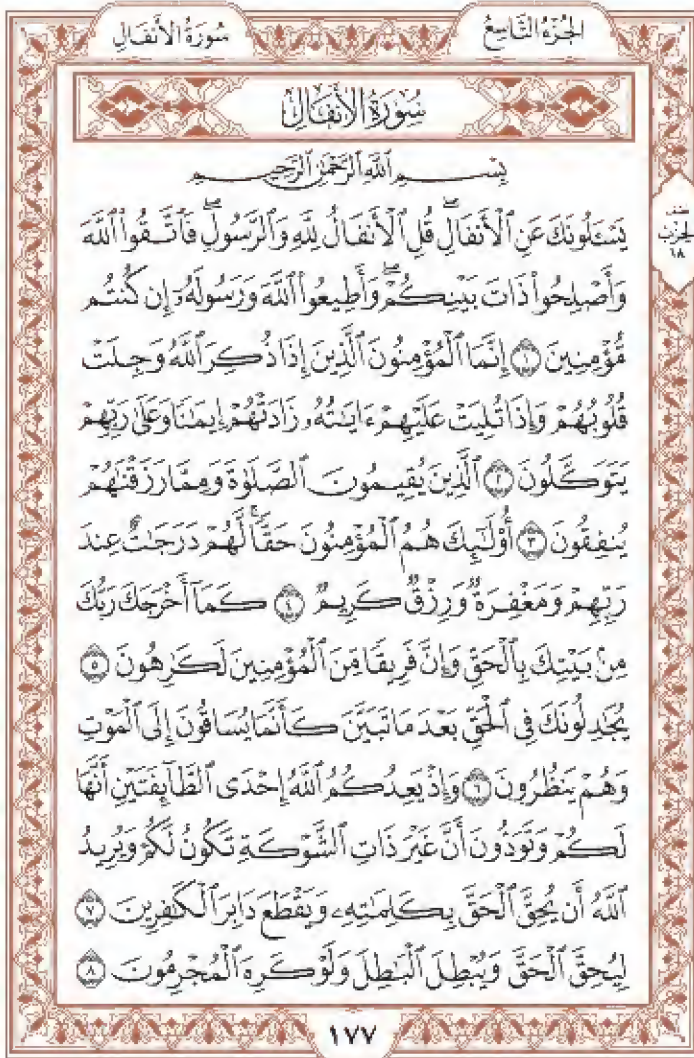 سُورَةُ الأَنفَالِ
الجُزْءُ التَّاسِعُ
سُورَةُ الأَنفَالِ
بِسْمِ ٱللَّهِ ٱلرَّحْمَٰنِ ٱلرَّحِيمِ
يَسْـَٔلُونَكَ عَنِ ٱلْأَنفَالِۖ قُلِ ٱلْأَنفَالُ لِلَّهِ وَٱلرَّسُولِۖ فَٱتَّقُوا۟ ٱللَّهَ
وَأَصْلِحُوا۟ ذَاتَ بَيْنِكُمْۖ وَأَطِيعُوا۟ ٱللَّهَ وَرَسُولَهُۥٓ إِن كُنتُم
مُّؤْمِنِينَ ١ إِنَّمَا ٱلْمُؤْمِنُونَ ٱلَّذِينَ إِذَا ذُكِرَ ٱللَّهُ وَجِلَتْ
قُلُوبُهُمْ وَإِذَا تُلِيَتْ عَلَيْهِمْ ءَايَٰتُهُۥ زَادَتْهُمْ إِيمَٰنًا وَعَلَىٰ رَبِّهِمْ
يَتَوَكَّلُونَ ٢ ٱلَّذِينَ يُقِيمُونَ ٱلصَّلَوٰةَ وَمِمَّا رَزَقْنَٰهُمْ
يُنفِقُونَ ٣ أُو۟لَٰٓئِكَ هُمُ ٱلْمُؤْمِنُونَ حَقًّاۚ لَّهُمْ دَرَجَٰتٌ عِندَ
رَبِّهِمْ وَمَغْفِرَةٌ وَرِزْقٌ كَرِيمٌ ٤ كَمَآ أَخْرَجَكَ رَبُّكَ
مِنۢ بَيْتِكَ بِٱلْحَقِّ وَإِنَّ فَرِيقًا مِّنَ ٱلْمُؤْمِنِينَ لَكَٰرِهُونَ ٥
يُجَٰدِلُونَكَ فِى ٱلْحَقِّ بَعْدَ مَا تَبَيَّنَ كَأَنَّمَا يُسَاقُونَ إِلَى ٱلْمَوْتِ
وَهُمْ يَنظُرُونَ ٦ وَإِذْ يَعِدُكُمُ ٱللَّهُ إِحْدَى ٱلطَّآئِفَتَيْنِ أَنَّهَا
لَكُمْ وَتَوَدُّونَ أَنَّ غَيْرَ ذَاتِ ٱلشَّوْكَةِ تَكُونُ لَكُمْ وَيُرِيدُ
ٱللَّهُ أَن يُحِقَّ ٱلْحَقَّ بِكَلِمَٰتِهِۦ وَيَقْطَعَ دَابِرَ ٱلْكَٰفِرِينَ ٧
لِيُحِقَّ ٱلْحَقَّ وَيُبْطِلَ ٱلْبَٰطِلَ وَلَوْ كَرِهَ ٱلْمُجْرِمُونَ ٨
نصف
الحزب
١٨
١٧٧